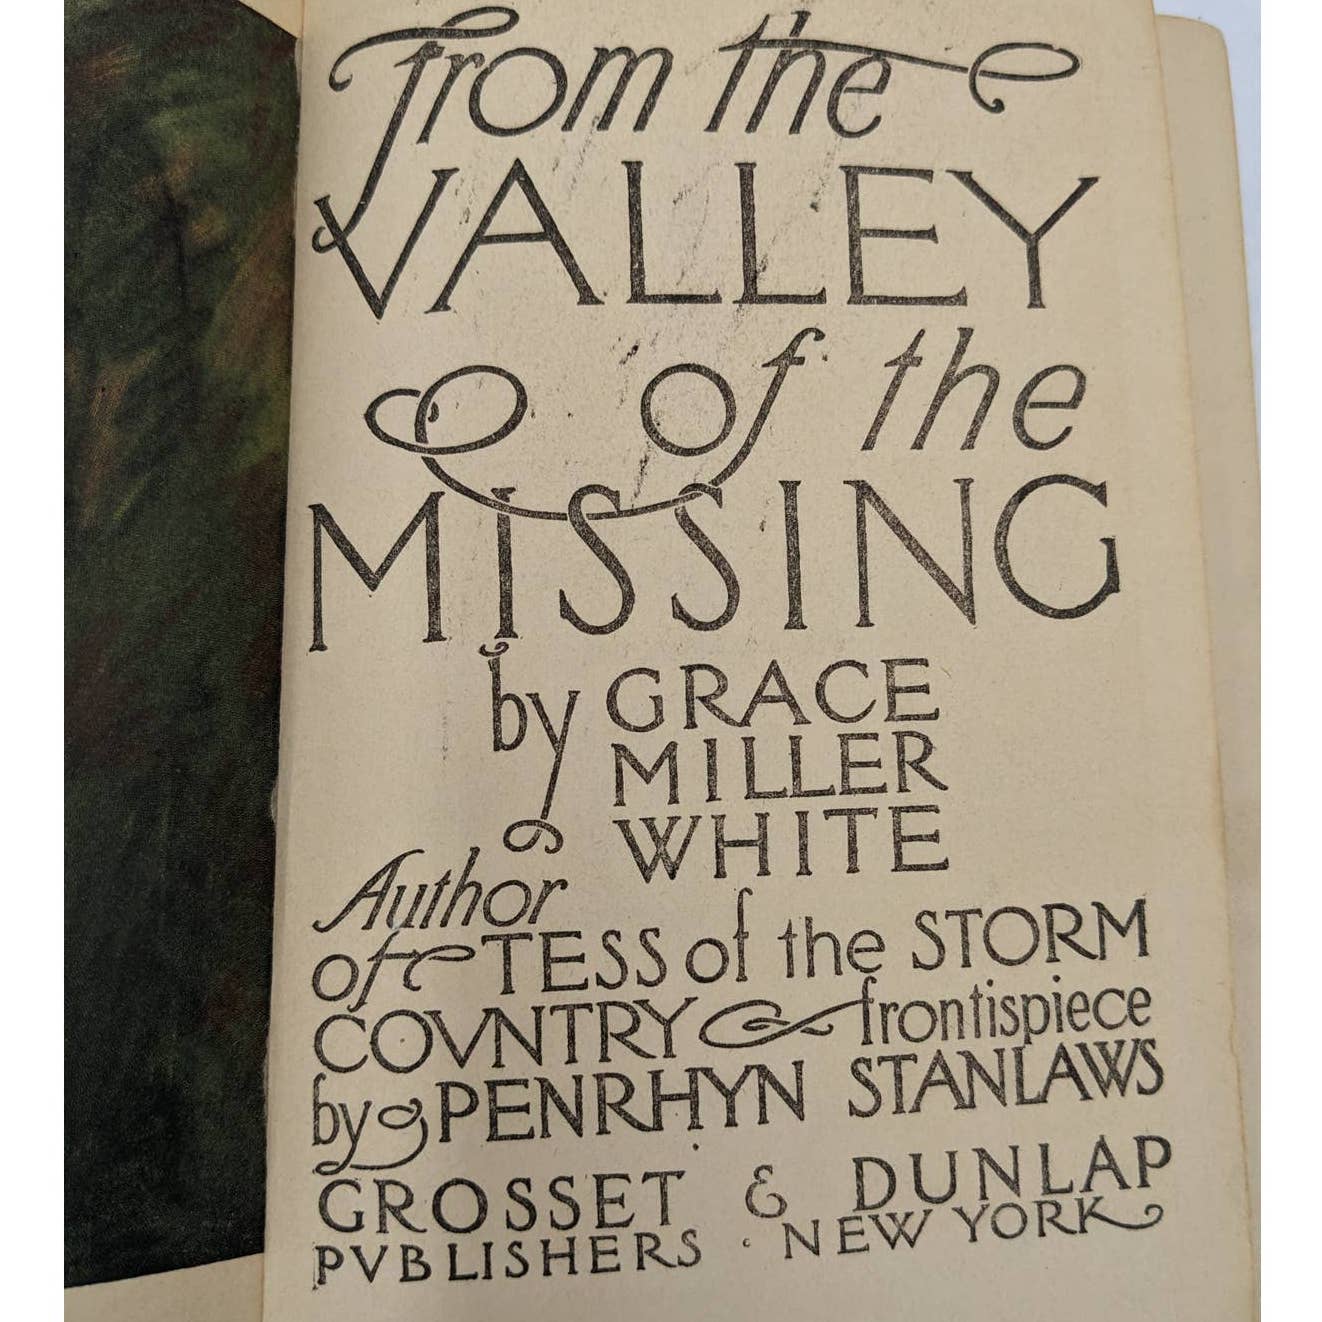 from the
VALLEY
of the
MISSING
by GRACE
MILLER
WHITE
Author
of TESS of the STORM
COVNTRY & frontispiece
by PENRHYN STANLAWS
GROSSET & DUNLAP
PVBLISHERS · NEW YORK